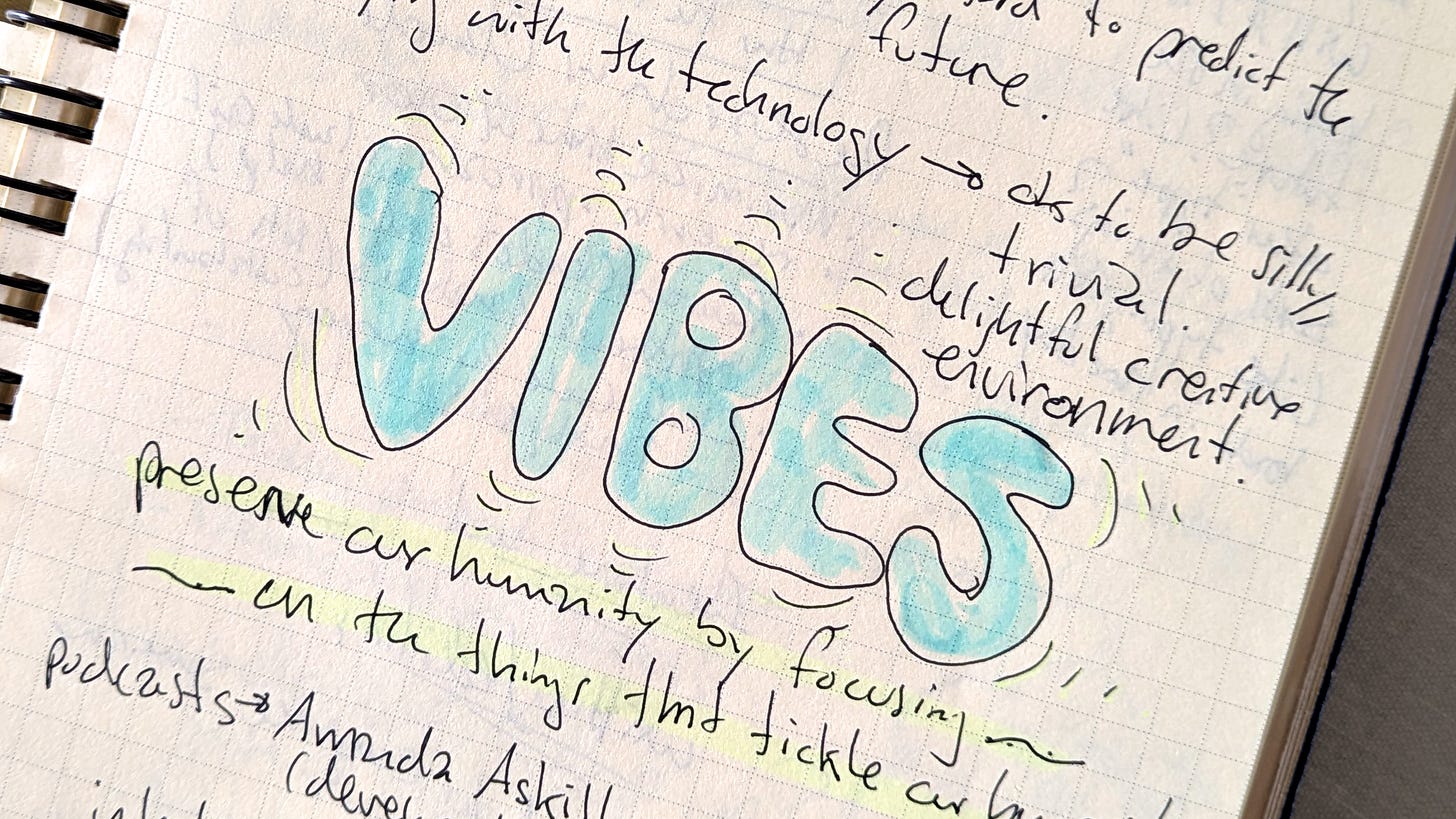 to predict the
future.
with the technology → ok to be silly
trivial.
delightful creative
environment.
VIBES
preserve our humanity by focusing
on the things that tickle our
podcasts → Amanda Askill